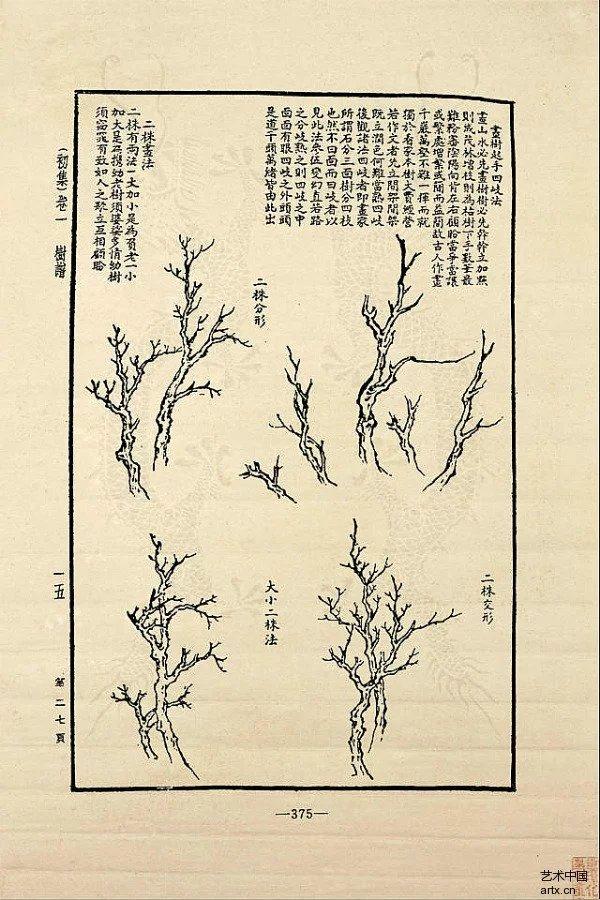 畫樹起手四岐法
畫山水必先畫樹樹必先幹幹立加點
則成茂林增枝則為枯樹下手數筆最
難務審陰陽向背左右顧盼當爭當讓
或繁處增繁或簡而益簡故古人作畫
千巖萬壑不難一揮而就
獨於看家本樹大費經營
若作文者先立間架間架
既立潤色何難當熟四岐
後觀諸法四岐者即畫家
所謂石分三面樹分四枝
也然不曰面而曰岐者以
見此法參伍變幻直若路
之分岐熟之則四岐之中
面面有眼四岐之外頭頭
是道千頭萬緒皆由此出
二株畫法
二株有兩法一大加小是為負老一小
加大是為攜幼老樹須婆娑多情幼樹
須窈窕有致如人之聚立互相顧盼
(初集)卷一 樹譜
二株分形
二株交形
大小二株法
一五
第二七頁
—375—
艺术中国
artx.cn